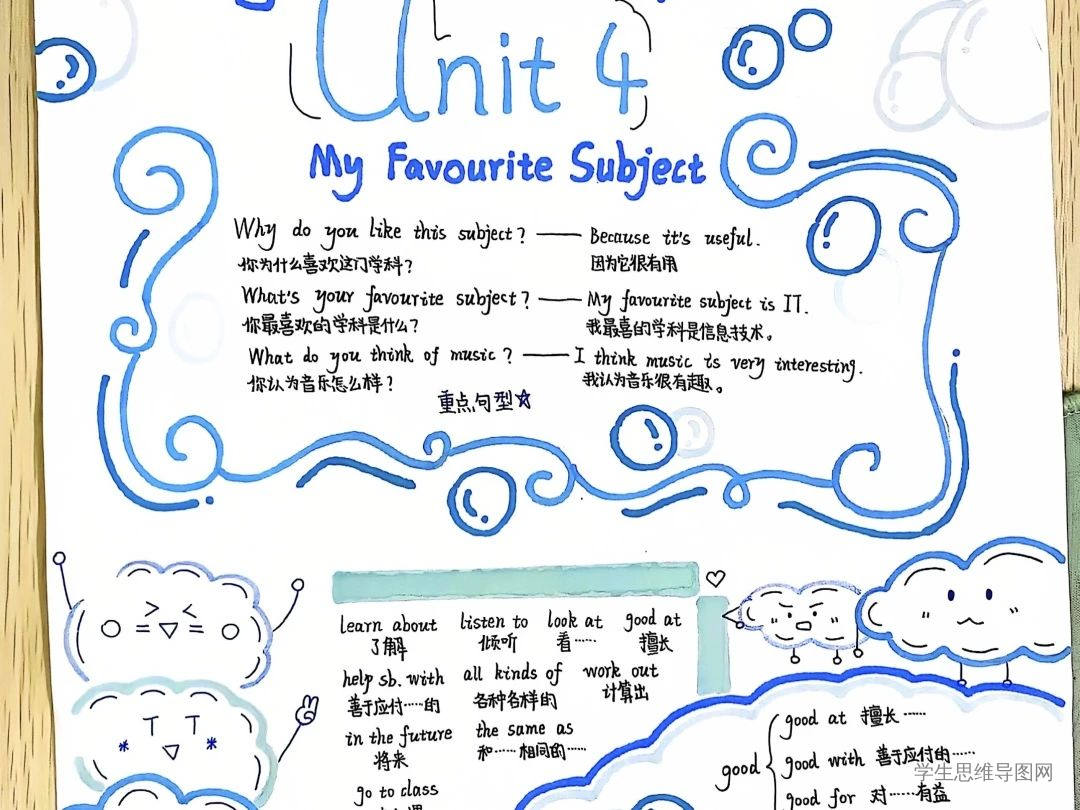 Unit 4
My Favourite Subject
Why do you like this subject? — Because it's useful.
你为什么喜欢这门学科? 因为它很有用
What's your favourite subject? — My favourite subject is IT.
你最喜欢的学科是什么? 我最喜的学科是信息技术。
What do you think of music? — I think music is very interesting.
你认为音乐怎么样? 我认为音乐很有趣。
重点句型☆
learn about listen to look at good at
了解 倾听 看…… 擅长
help sb. with all kinds of work out
善于应付……的 各种各样的 计算出
in the future the same as
将来 和……相同的……
go to class
good
good at 擅长……
good with 善于应付的……
good for 对……有益
学生思维导图网